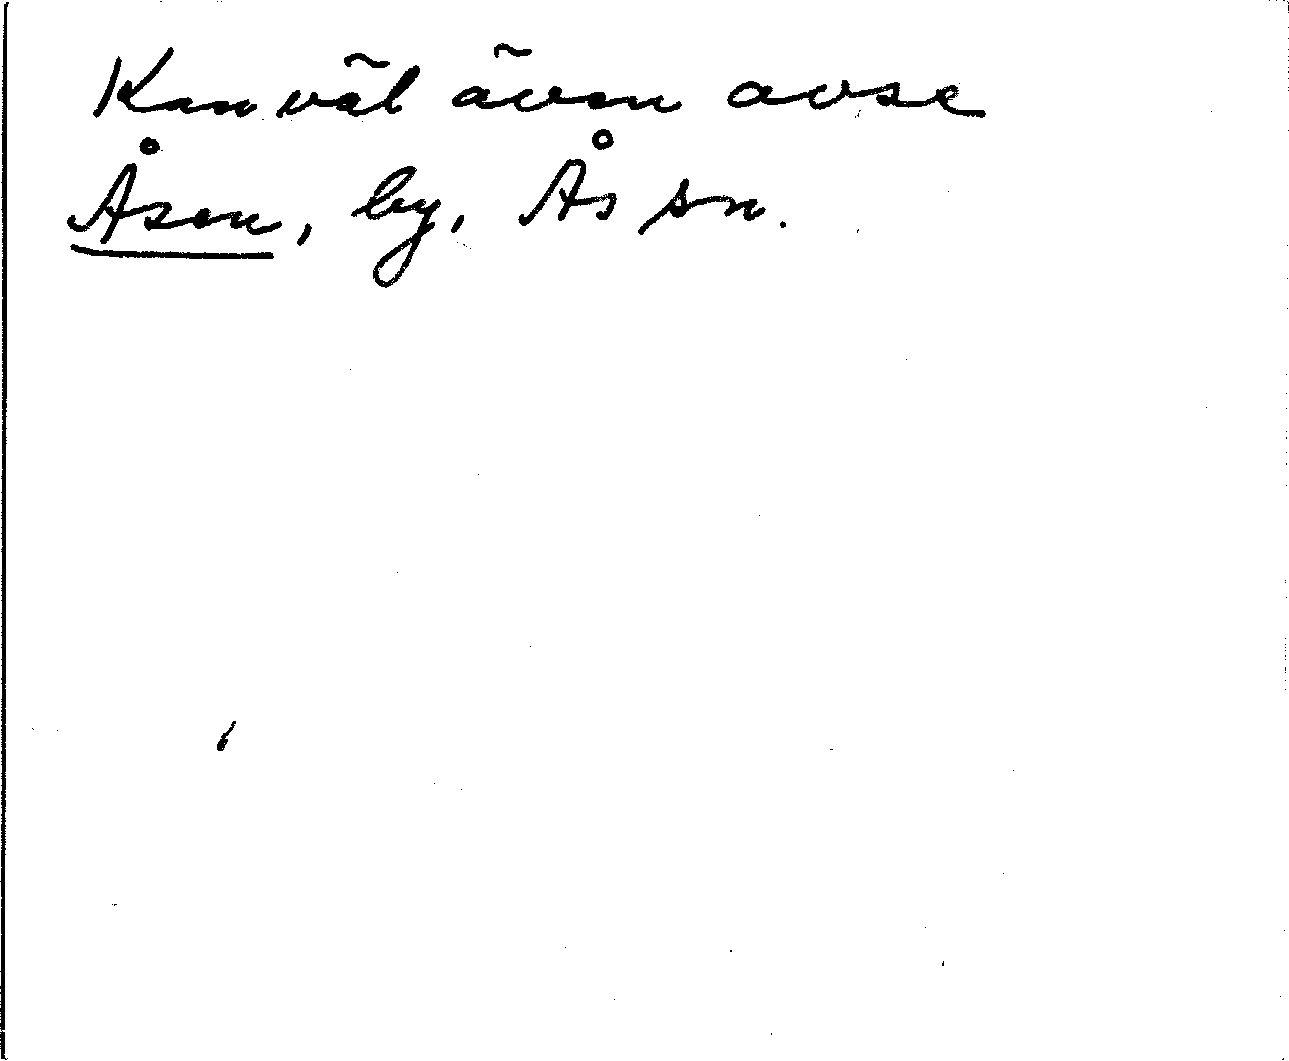 Kan väl även avse
Åsen, by, Ås sn.